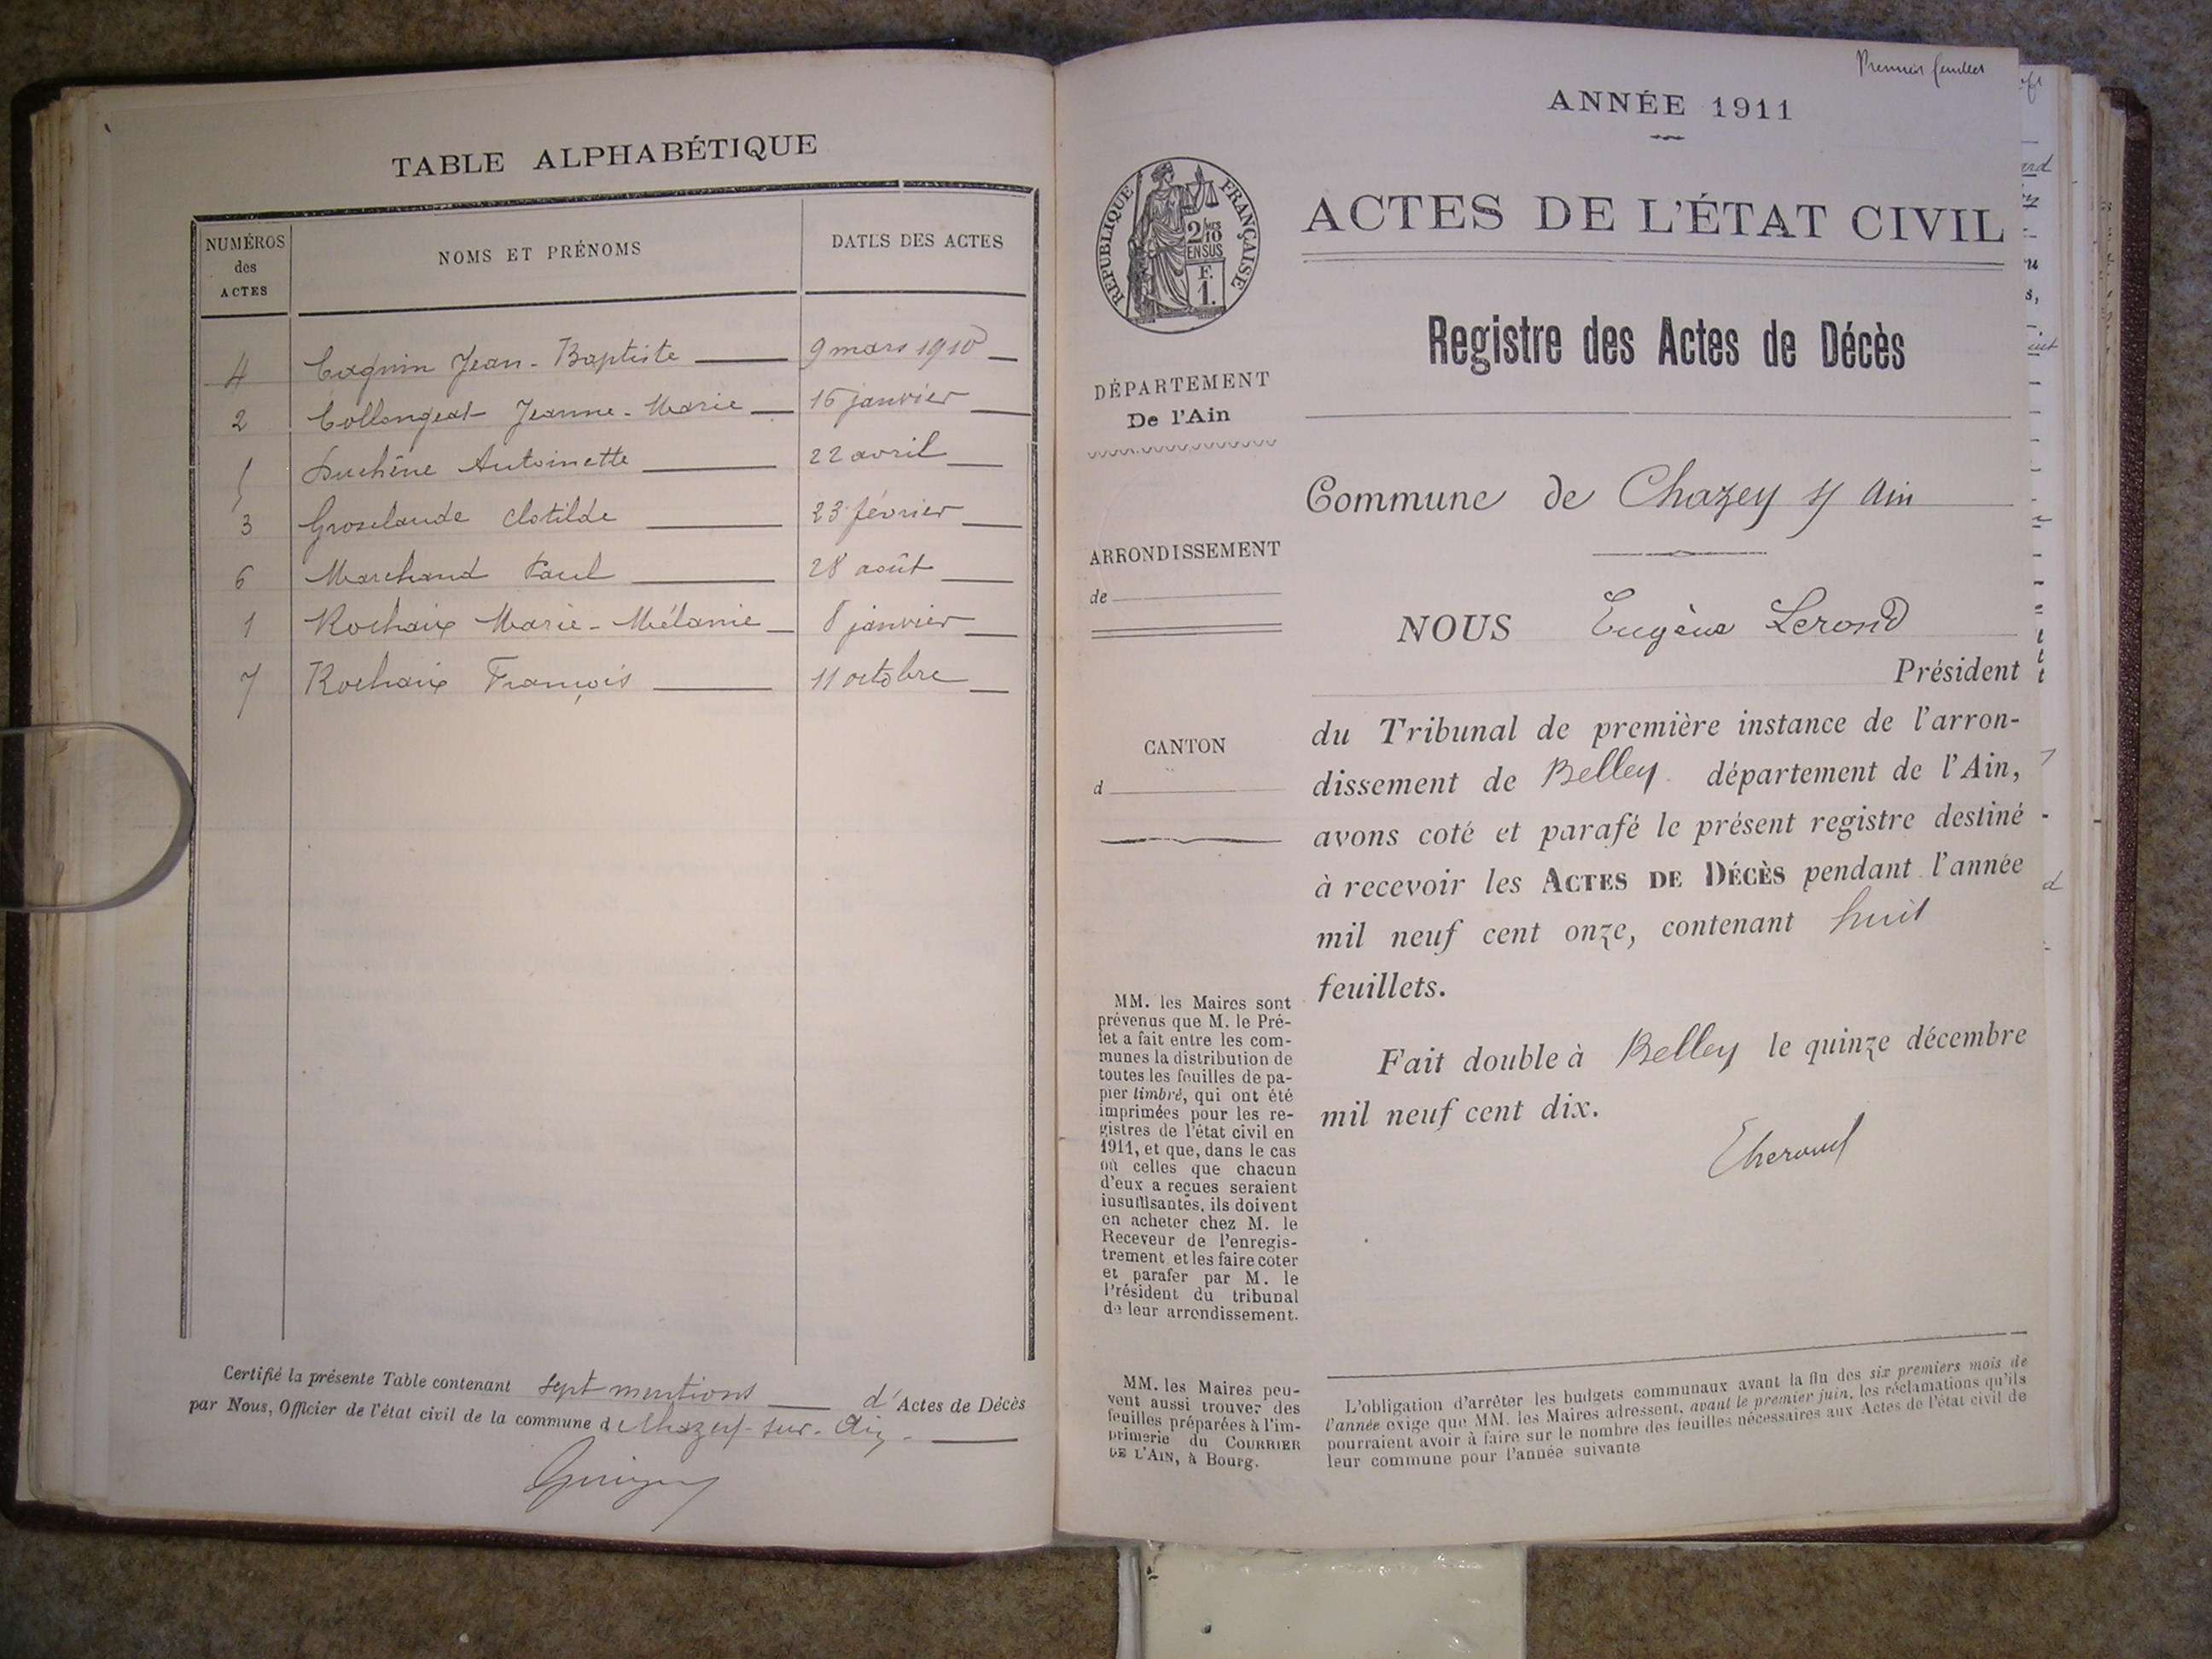 TABLE ALPHABÉTIQUE
NUMÉROS des ACTES
NOMS ET PRÉNOMS
DATES DES ACTES
4 Caquin Jean-Baptiste 9 mars 1910
2 Collongeat Jeanne-Marie 16 janvier
5 Duchêne Antoinette 22 avril
3 Groselaude Clotilde 23 février
6 Marchand Paul 28 août
1 Rochaix Marie-Mélanie 8 janvier
7 Rochaix François 11 octobre
Certifié la présente Table contenant sept mentions d'Actes de Décès
par Nous, Officier de l'état civil de la commune de Chazey-sur-Ain.
Premier feuillet
ANNÉE 1911
RÉPUBLIQUE FRANÇAISE
2/10 MES
EN SUS
F.
1.
ACTES DE L'ÉTAT CIVIL
Registre des Actes de Décès
DÉPARTEMENT
De l'Ain
ARRONDISSEMENT
de
CANTON
d
MM. les Maires sont
prévenus que M. le Pré-
fet a fait entre les com-
munes la distribution de
toutes les feuilles de pa-
pier timbré, qui ont été
imprimées pour les re-
gistres de l'état civil en
1911, et que, dans le cas
où celles que chacun
d'eux a reçues seraient
insuffisantes, ils doivent
en acheter chez M. le
Receveur de l'enregis-
trement et les faire coter
et parafer par M. le
Président du tribunal
de leur arrondissement.
MM. les Maires peu-
vent aussi trouver des
feuilles préparées à l'im-
primerie du COURRIER
DE L'AIN, à Bourg.
Commune de Chazey s/ Ain
NOUS Eugène Lerond
Président
du Tribunal de première instance de l'arron-
dissement de Belley département de l'Ain,
avons coté et parafé le présent registre destiné
à recevoir les ACTES DE DÉCÈS pendant l'année
mil neuf cent onze, contenant huit
feuillets.
Fait double à Belley le quinze décembre
mil neuf cent dix.
L'obligation d'arrêter les budgets communaux avant la fin des six premiers mois de
l'année exige que MM. les Maires adressent, avant le premier juin, les réclamations qu'ils
pourraient avoir à faire sur le nombre des feuilles nécessaires aux Actes de l'état civil de
leur commune pour l'année suivante